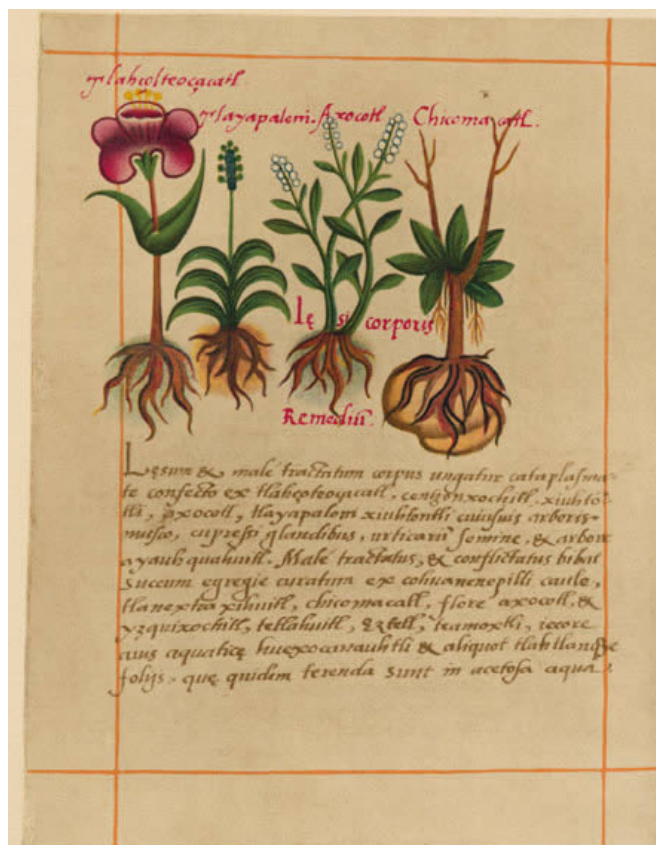 Tlahçolteoçacatl.
Tlayapaloni. Axocotl Chicomacatl.
Lęsi corporis
Remediũ.
Lęsum & malé tractatum corpus ungatur cataplasma-
te confecto ex tlahçoteoçacatl, centzonxochitl, xiuhto-
tli, axocotl, tlayapaloni xiuhtontli cuiusuis arboris
musco, cupressi glandibus, urticarũ semine, & arbore
ayauhquahuitl. Malé tractatus, & conflictatus bibat
succum egregie curatum ex cohuanenepilli caule,
tlanextia xihuitl, chicomacatl, flore axocotl, &
yzquixochitl, tetlahuitl, eztetl, teamoxtli, iecore
auis aquaticę huexocanauhtli & aliquot tlahtlanqye
folijs, quę quidem terenda sunt in acetosa aqua.